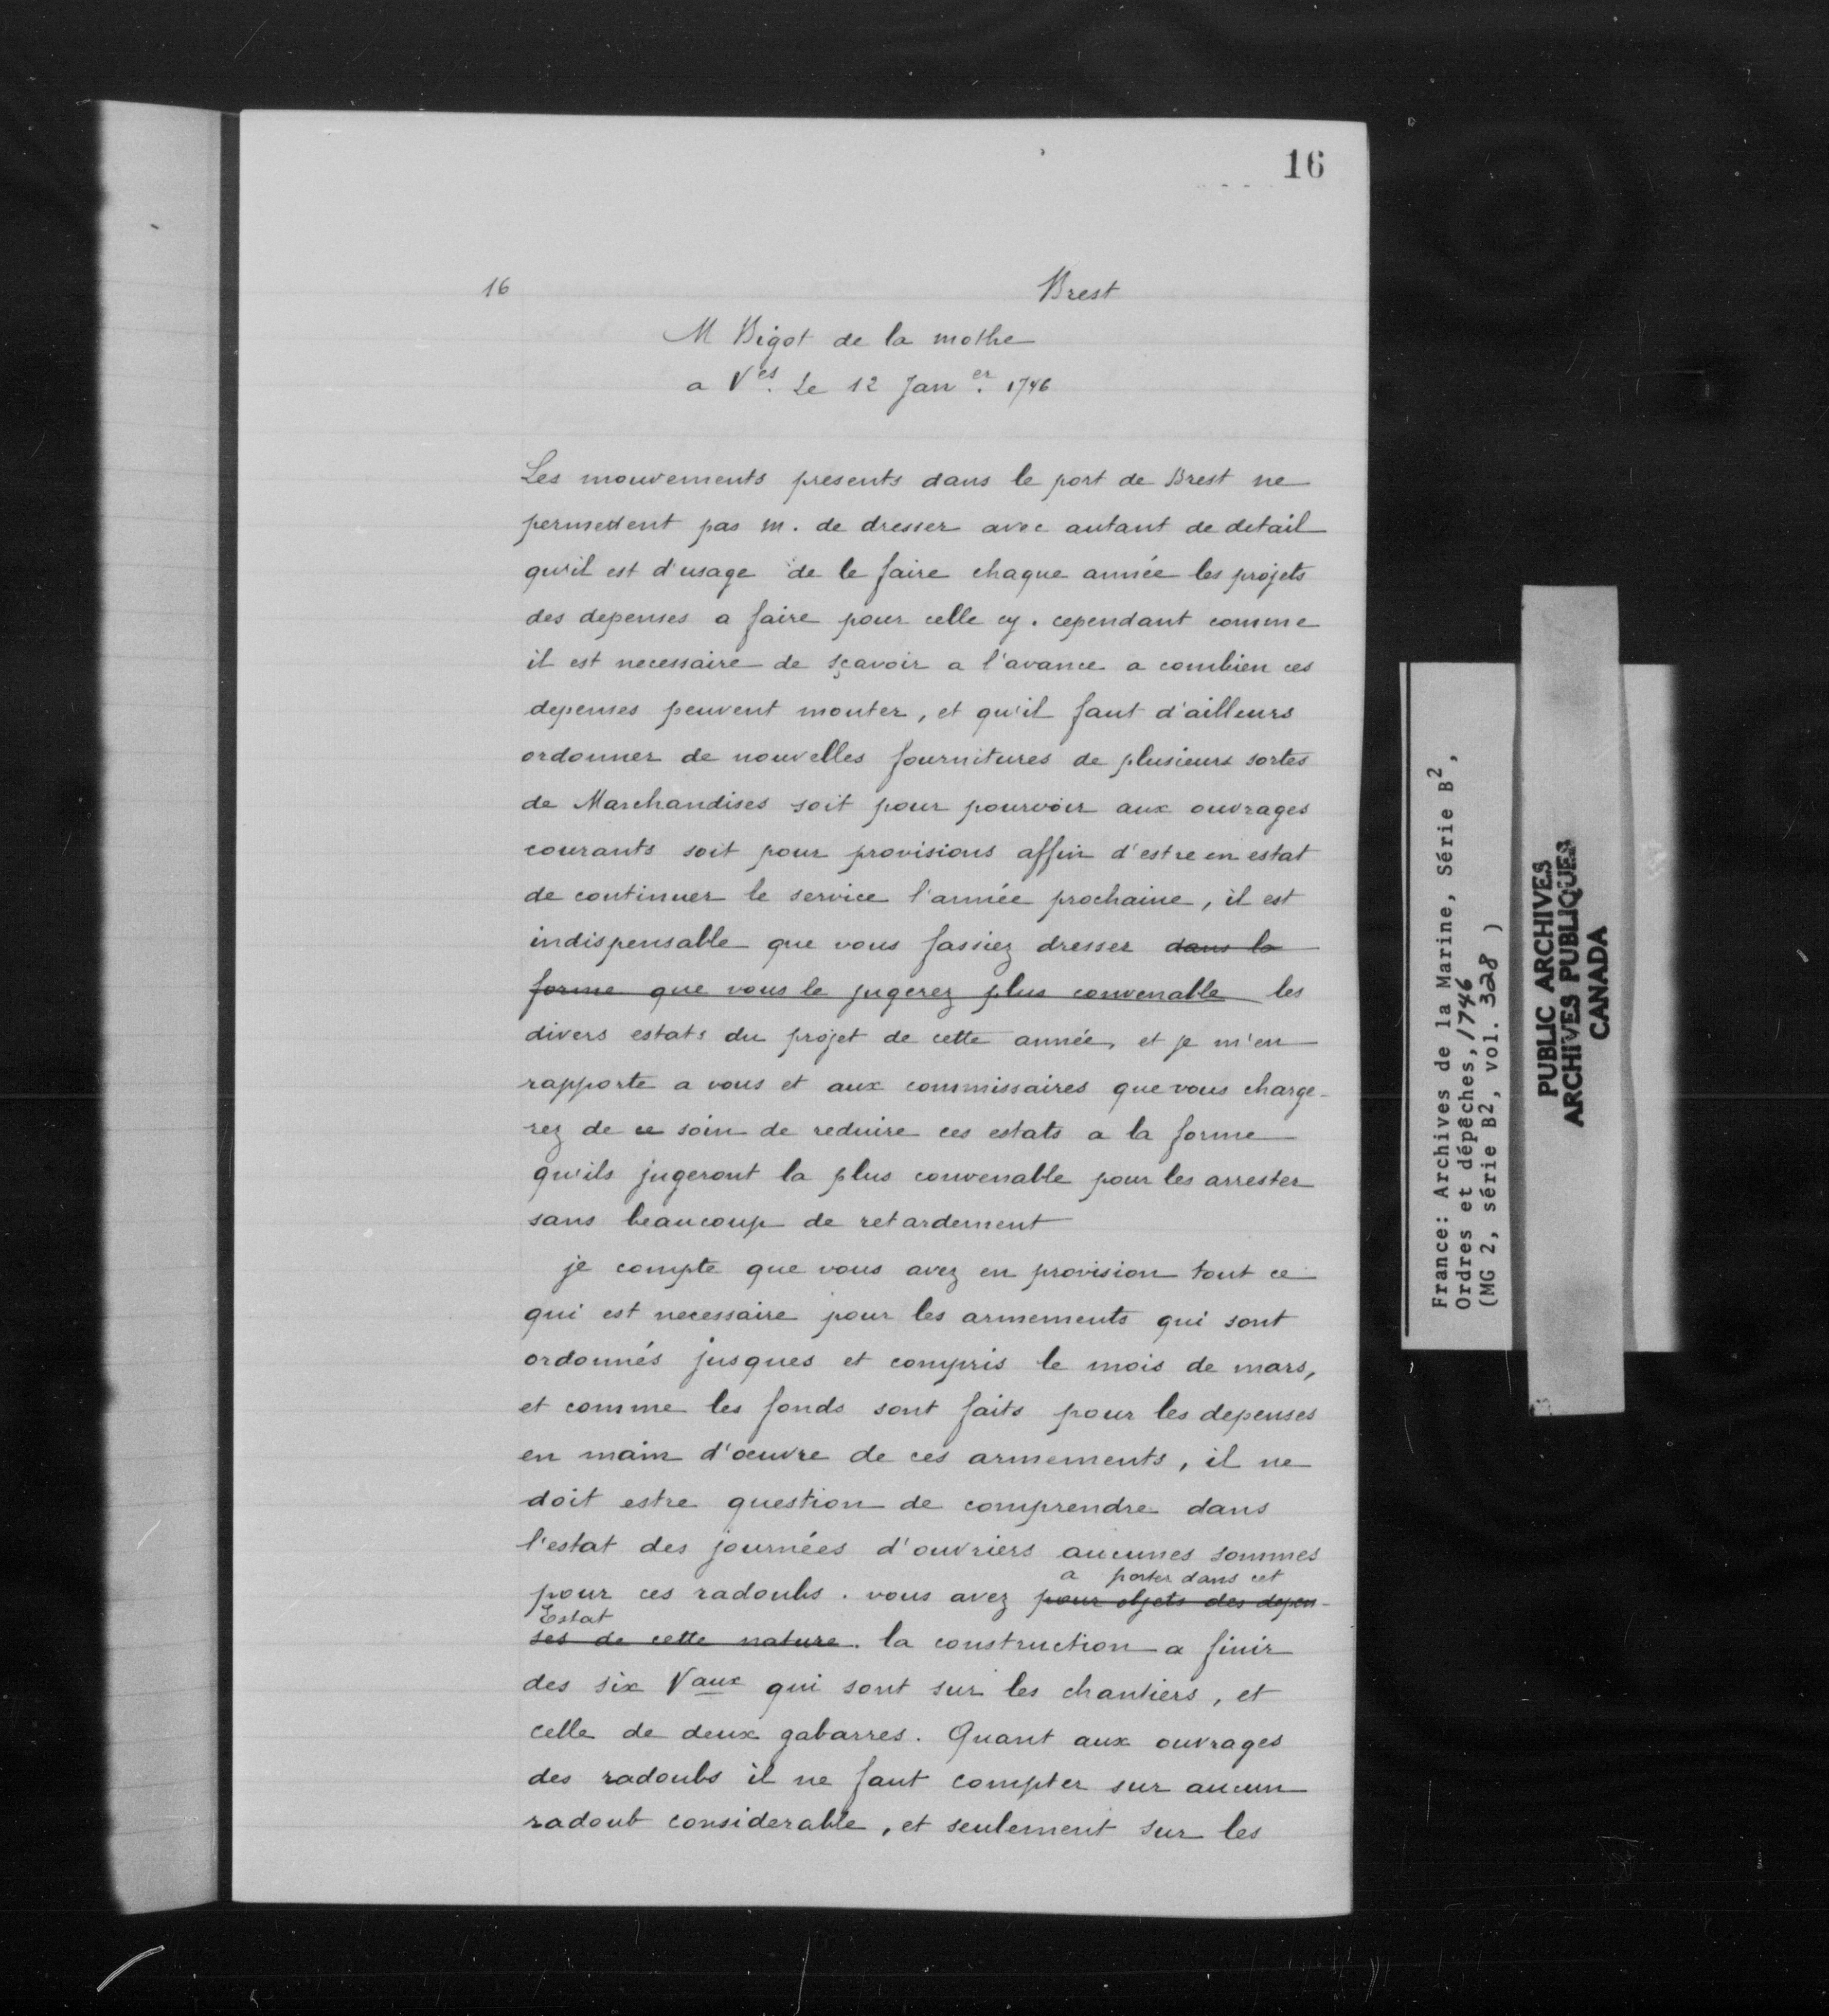 16
16
Brest
M Bigot de la mothe
a Ves. Le 12 Janer. 1746
Les mouvements presents dans le port de Brest ne
permettent pas m. de dresser avec autant de detail
qu'il est d'usage de le faire chaque année les projets
des depenses a faire pour celle cy. cependant comme
il est necessaire de sçavoir a l'avance a combien ces
depenses peuvent monter, et qu'il faut d'ailleurs
ordonner de nouvelles fournitures de plusieurs sortes
de Marchandises soit pour pourvoir aux ouvrages
courants soit pour provisions affin d'estre en estat
de continuer le service l'année prochaine, il est
indispensable que vous fassiez dresser dans la
forme que vous le jugerez plus convenable les
divers estats du projet de cette année, et je m'en
rapporte a vous et aux commissaires que vous charge-
rez de ce soin de reduire ces estats a la forme
qu'ils jugeront la plus convenable pour les arrester
sans beaucoup de retardement
je compte que vous avez en provision tout ce
qui est necessaire pour les armements qui sont
ordonnés jusques et compris le mois de mars,
et comme les fonds sont faits pour les depenses
en main d'œuvre de ces armements, il ne
doit estre question de comprendre dans
l'estat des journées d'ouvriers aucunes sommes
a porter dans cet
pour ces radoubs. vous avez pour objets des depen-
Estat
ses de cette nature. la construction a finir
des six Vaux qui sont sur les chantiers, et
celle de deux gabarres. Quant aux ouvrages
des radoubs il ne faut compter sur aucun
radoub considerable, et seulement sur les
France: Archives de la Marine, Série B2,
Ordres et dépêches, 1746
(MG 2, série B2, vol. 328 )
PUBLIC ARCHIVES
ARCHIVES PUBLIQUES
CANADA